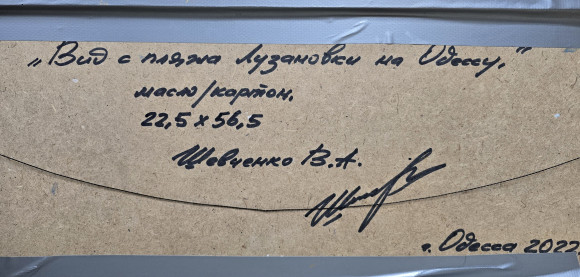 „Вид с пляжа Лузановки на Одессу."
масло/картон.
22,5 x 56,5
Шевченко В.А.
г. Одесса 2022